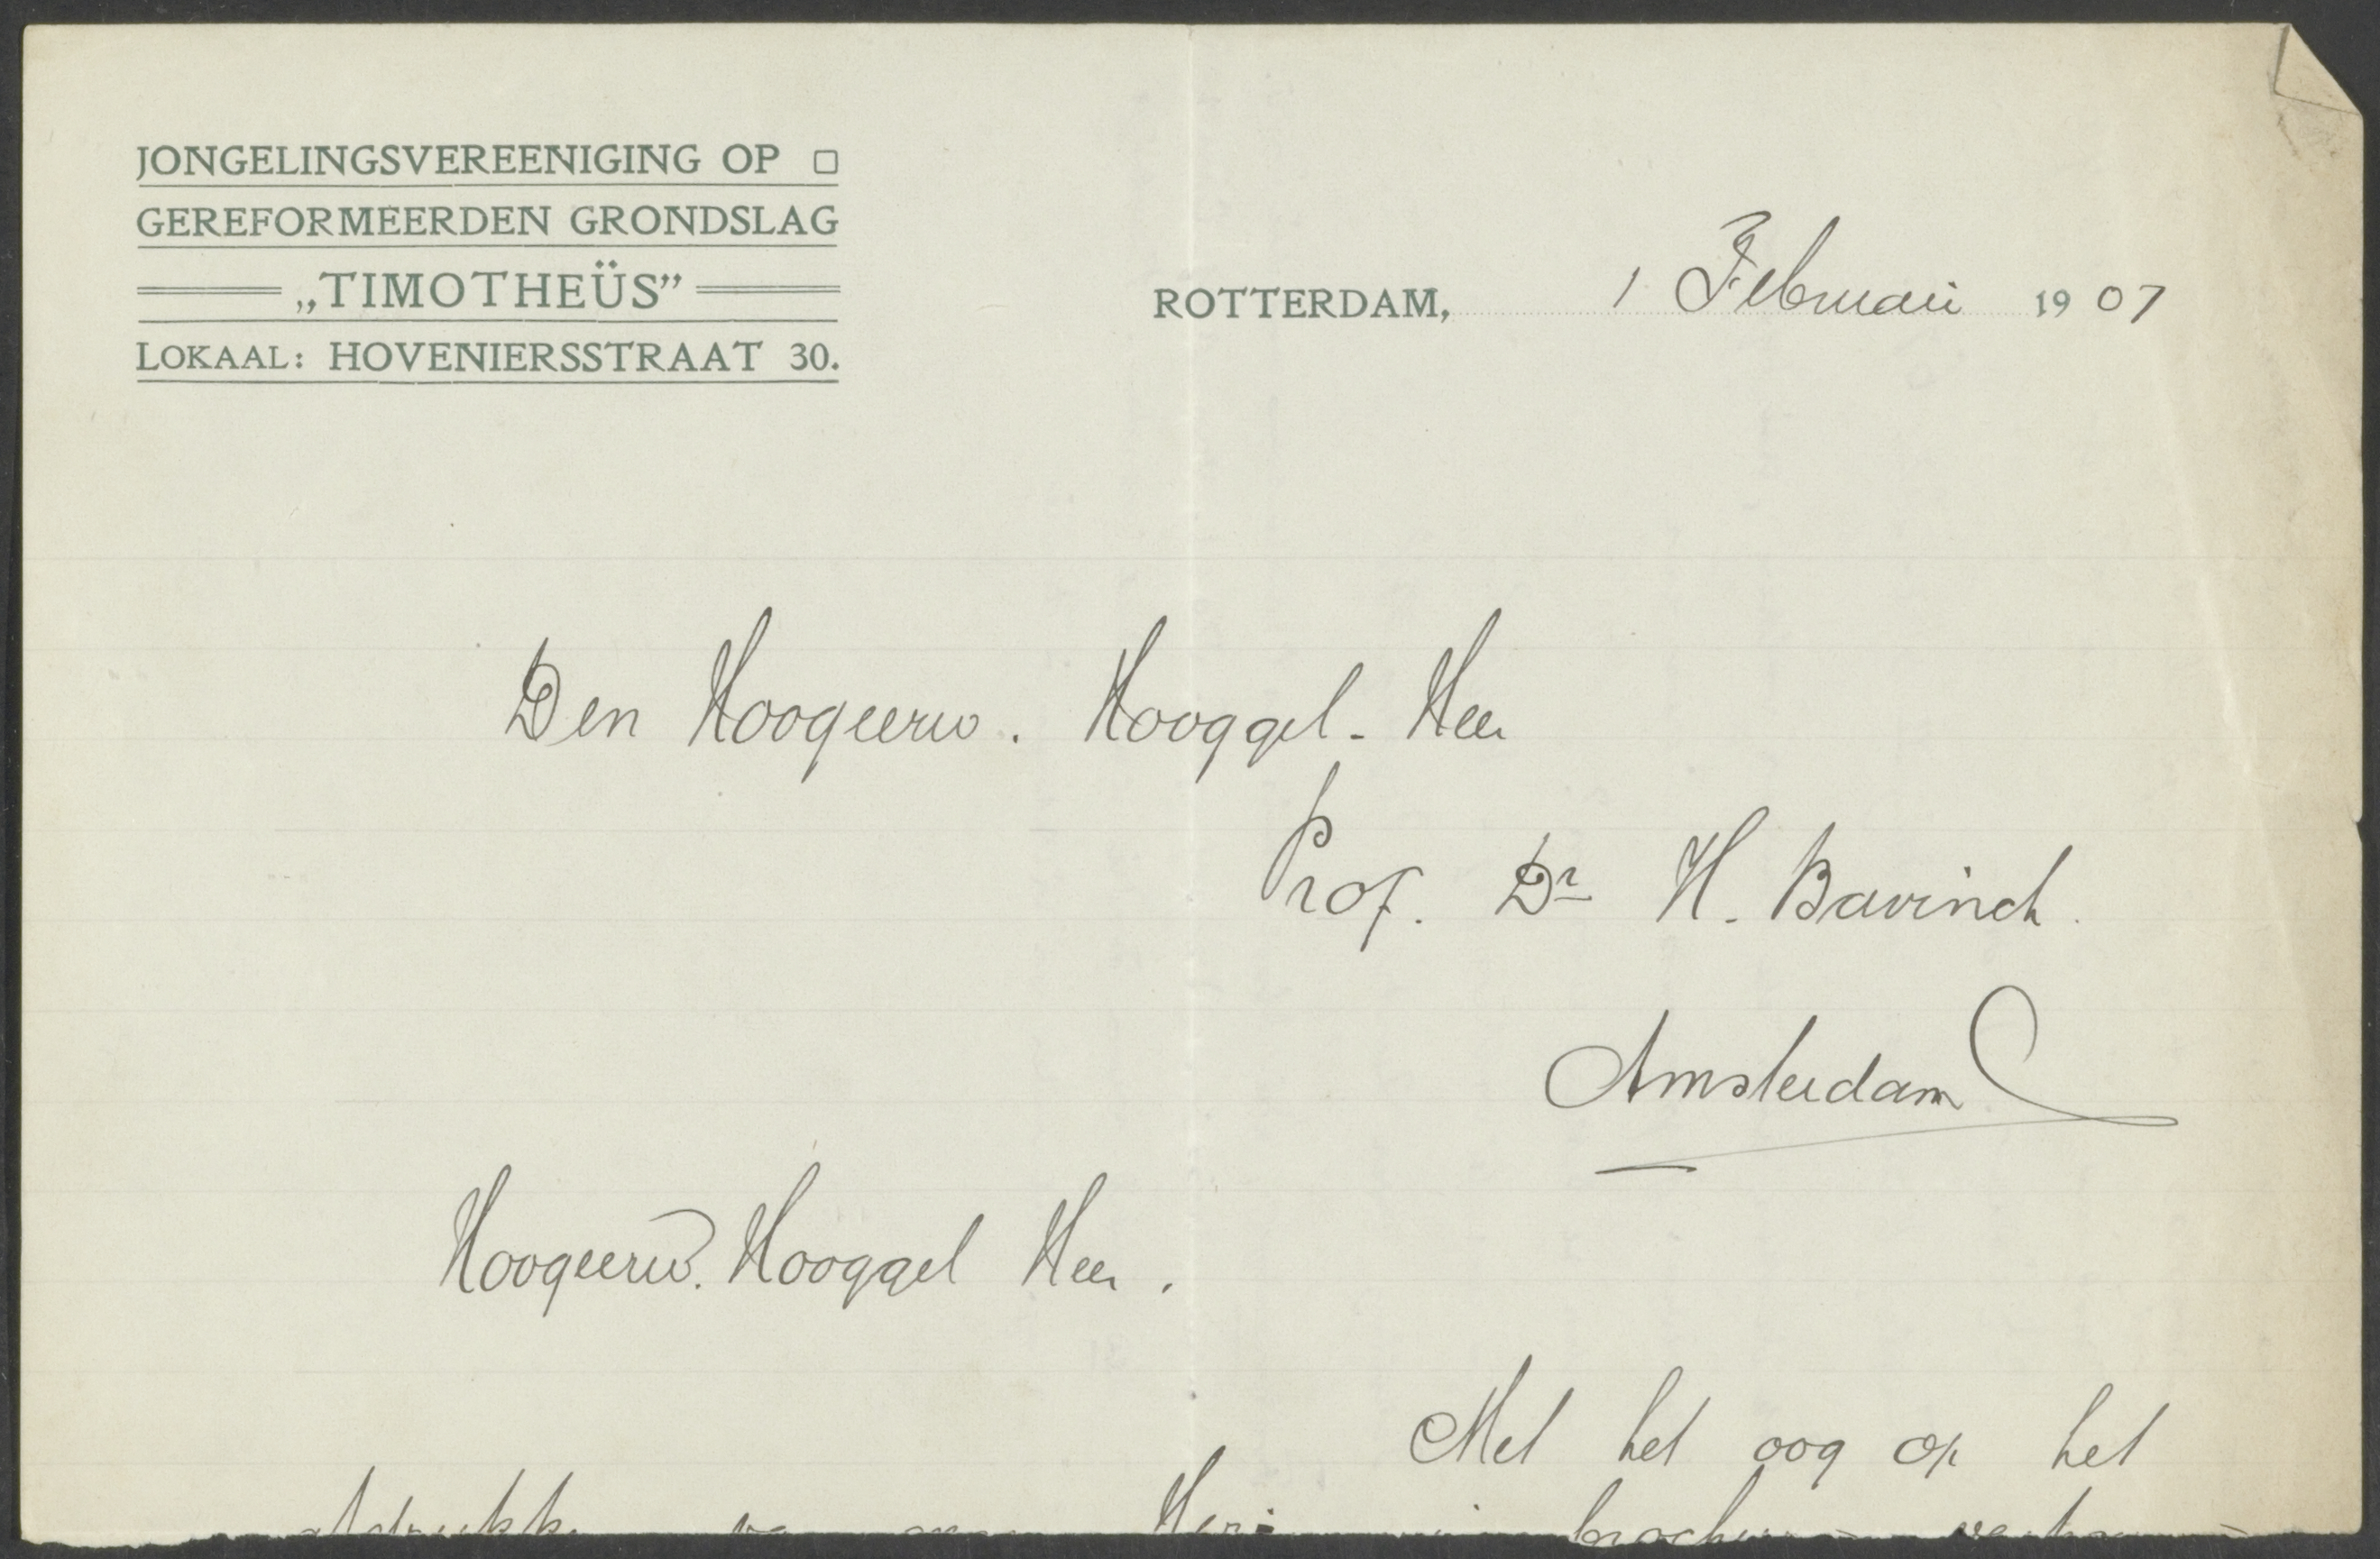 JONGELINGSVEREENIGING OP
GEREFORMEERDEN GRONDSLAG
„TIMOTHEÜS”
LOKAAL: HOVENIERSSTRAAT 30.
ROTTERDAM, 1 Februari 1907
Den Hoogeerw. Hooggel. Heer
Prof. Dr H. Bavinck.
Amsterdam
Hoogeerw. Hooggel Heer.
Met het oog op het